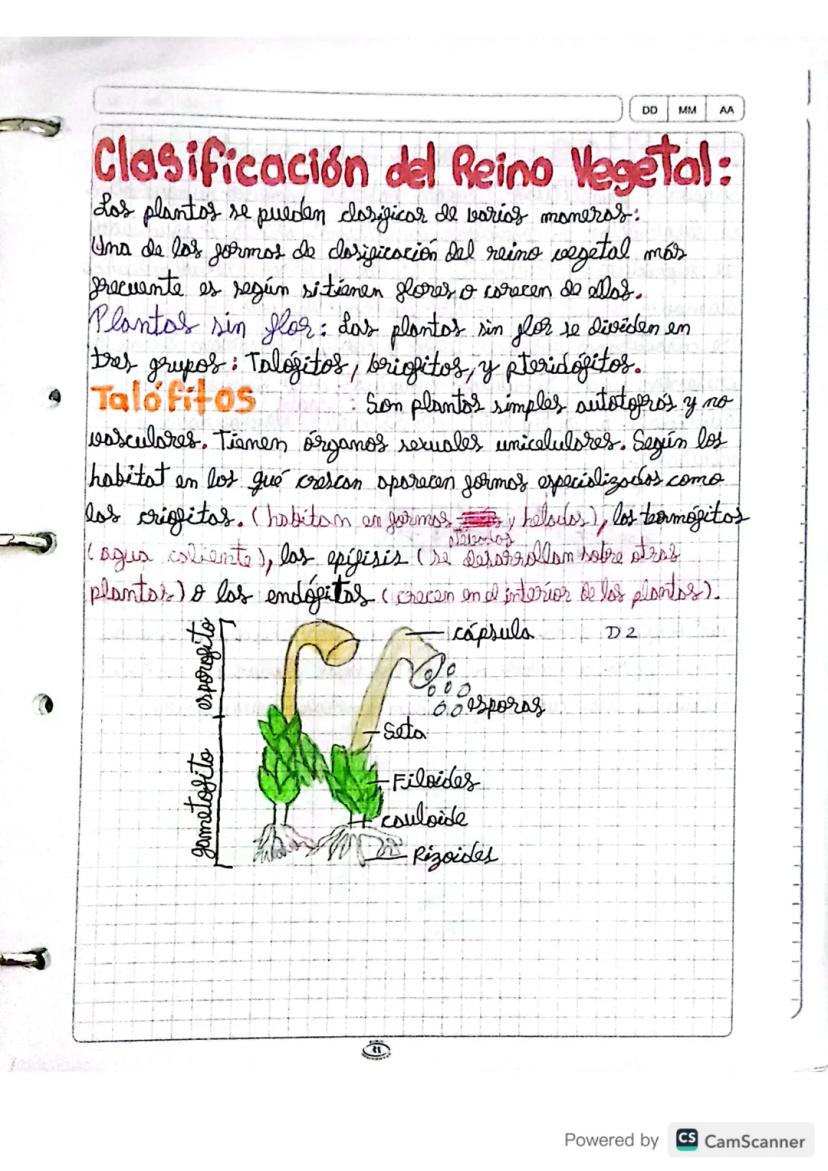 DD MM AA
Clasificación del Reino Vegetal:
Las plantas se pueden clasificar de varias maneras:
Una de las formas de clasificación del reino vegetal más
frecuente es según si tienen flores o carecen de ellas.
Plantas sin flor: Las plantas sin flor se dividen en
tres grupos: Talófitos, briofitos, y pteridófitos.
Talófitos : Son plantas simples autotofros y no
vasculares. Tienen órganos sexuales unicelulares. Según los
habitat en los qué crescan aparecen formas especializados como
las criofitas. (habitan en formas y helados), los termófitos
(agua caliente), las epífisis (se desarrollan sobre otras
plantas) o las endófitas (crecen en el interior de las plantas).
esporofito
cápsula
D2
esporas
Seta
gametofito
Filoides
cauloide
Rizoides
Powered by CS CamScanner